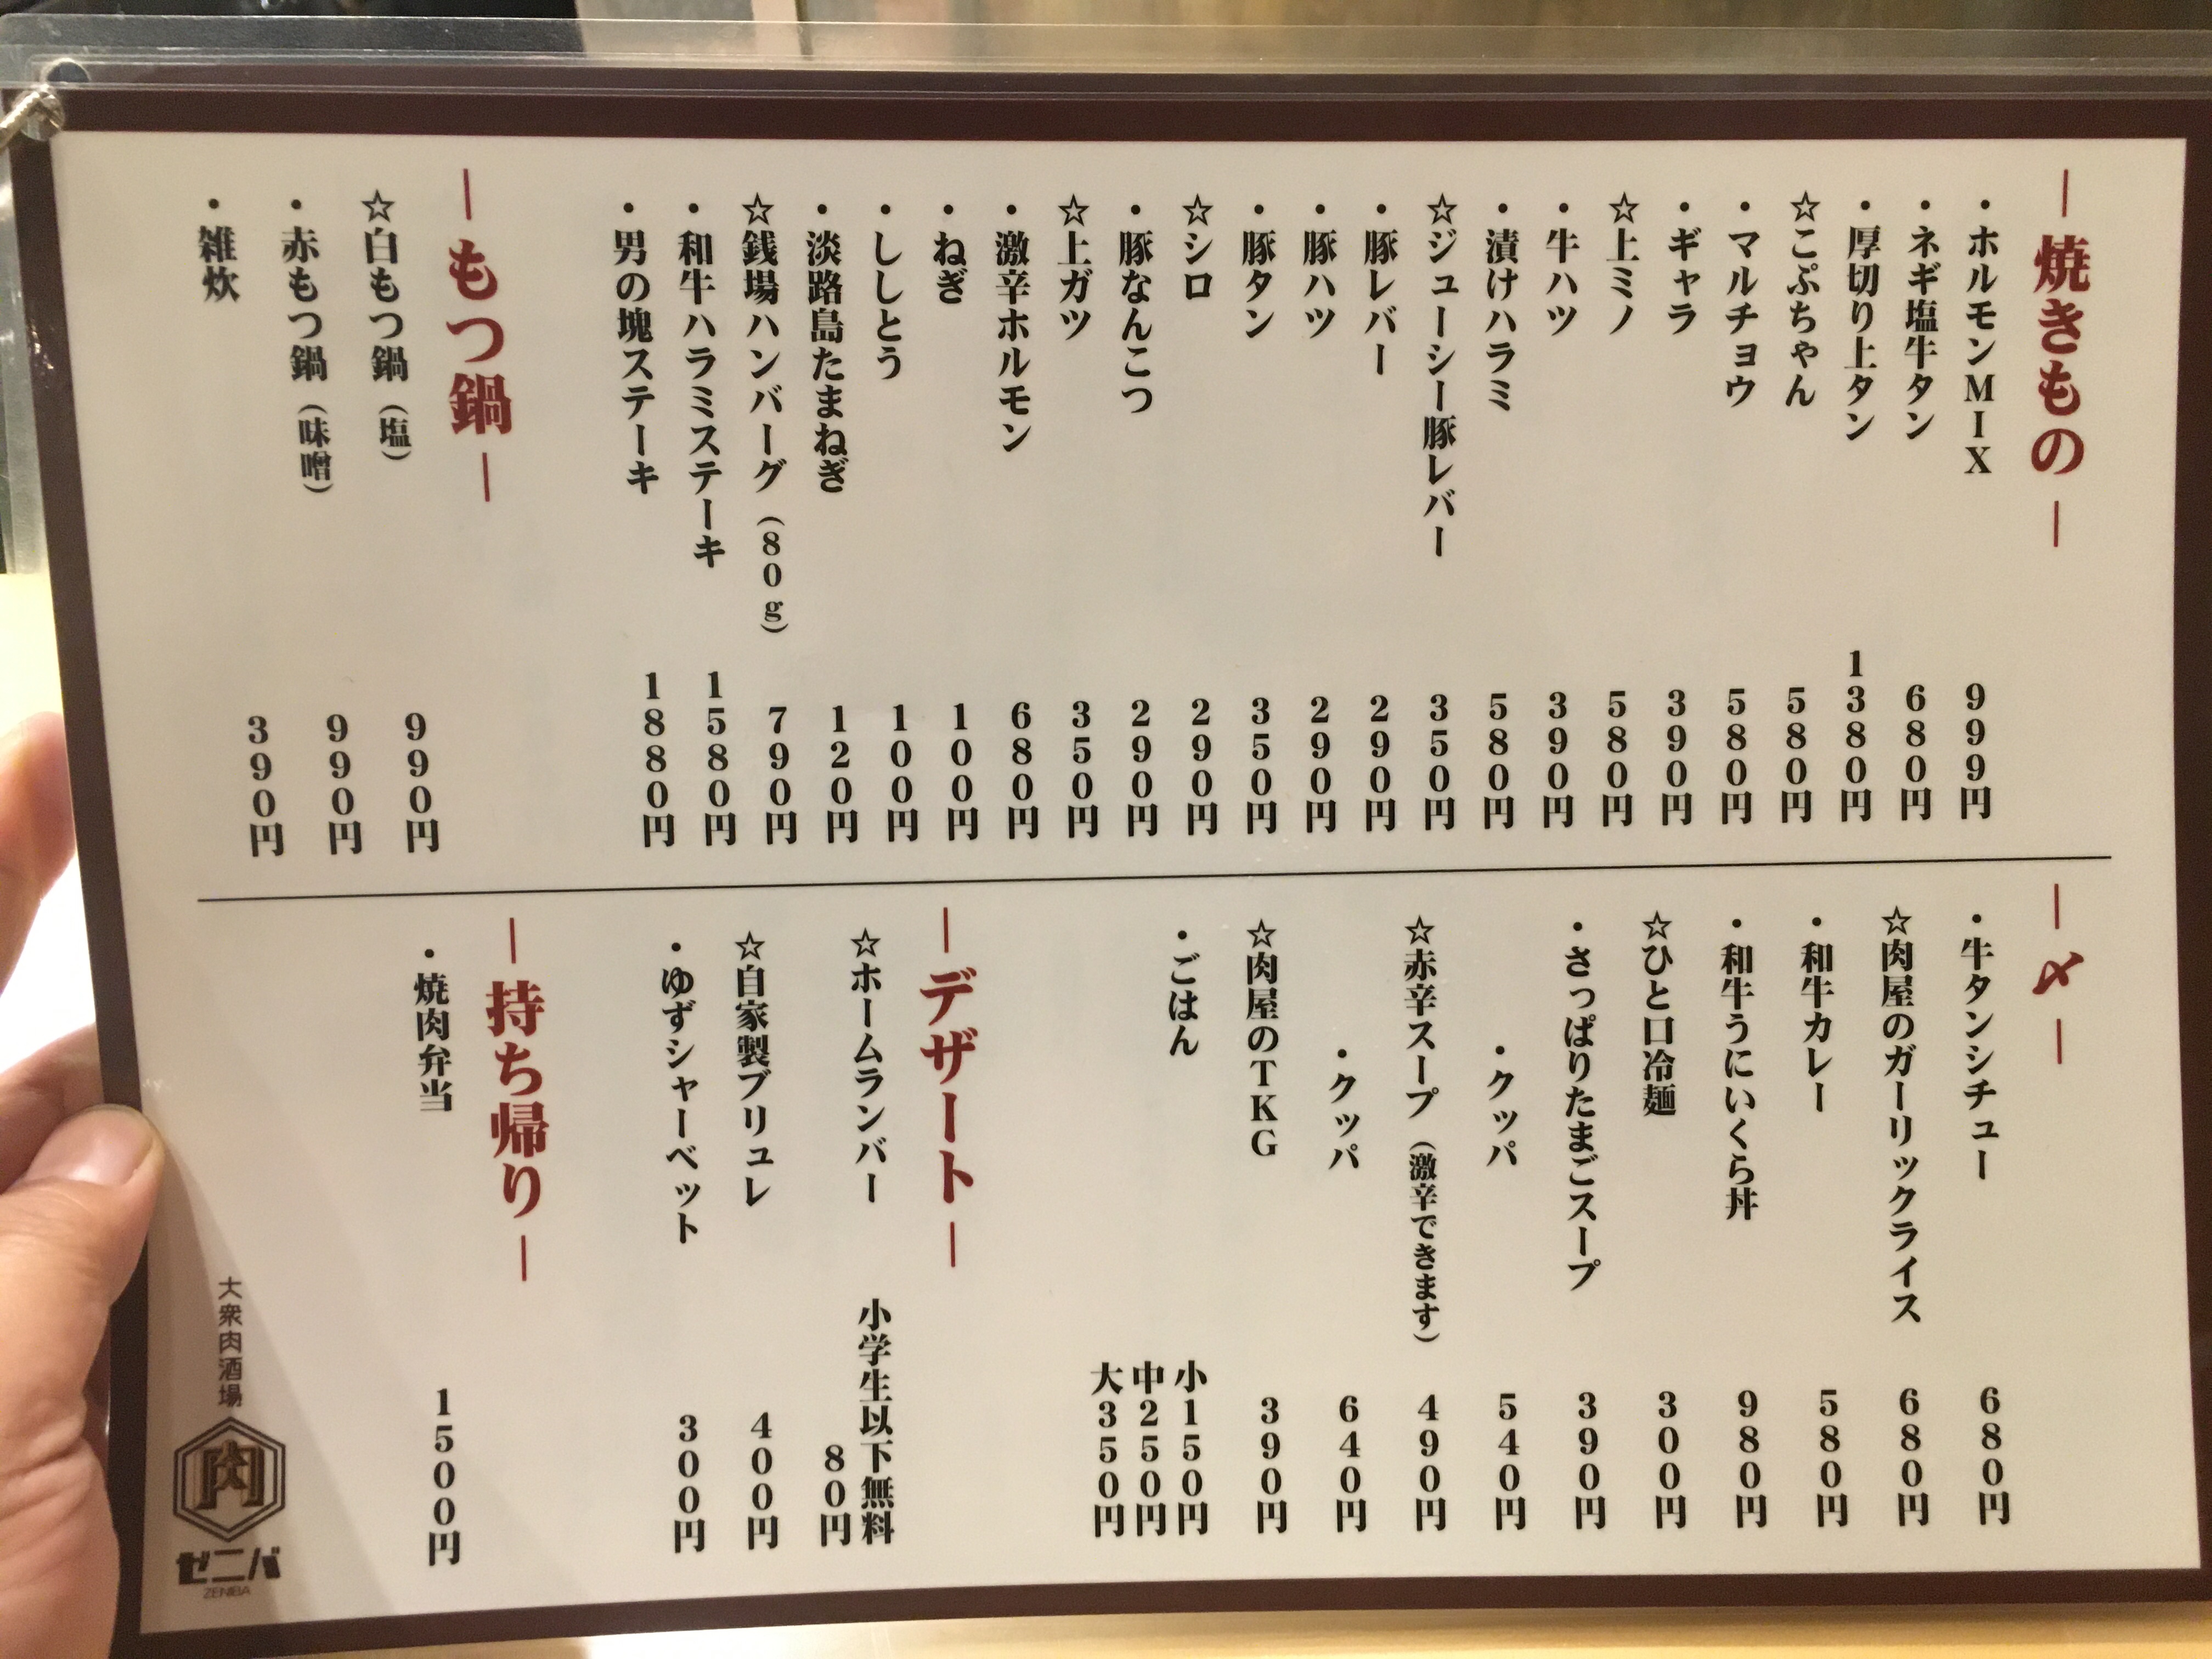 ―焼きもの―
・ホルモンMIX 999円
・ネギ塩牛タン 680円
・厚切り上タン 1380円
☆こぷちゃん 580円
・マルチョウ 580円
・ギャラ 390円
☆上ミノ 580円
・牛ハツ 390円
・漬けハラミ 580円
☆ジューシー豚レバー 350円
・豚レバー 290円
・豚ハツ 290円
・豚タン 350円
☆シロ 290円
・豚なんこつ 290円
☆上ガツ 350円
・激辛ホルモン 680円
・ねぎ 100円
・ししとう 100円
・淡路島たまねぎ 120円
☆銭場ハンバーグ（80g） 790円
・和牛ハラミステーキ 1580円
・男の塊ステーキ 1880円
―もつ鍋―
☆白もつ鍋（塩） 990円
・赤もつ鍋（味噌） 990円
・雑炊 390円
―〆―
・牛タンシチュー 680円
☆肉屋のガーリックライス 680円
・和牛カレー 580円
・和牛うにいくら丼 980円
☆ひと口冷麺 300円
・さっぱりたまごスープ 390円
・クッパ 540円
☆赤辛スープ（激辛できます） 490円
・クッパ 640円
☆肉屋のTKG 390円
・ごはん 小150円
中250円
大350円
―デザート―
☆ホームランバー 小学生以下無料
80円
☆自家製ブリュレ 400円
・ゆずシャーベット 300円
―持ち帰り―
・焼肉弁当 1500円
大衆肉酒場
肉
ゼニバ
ZENIBA